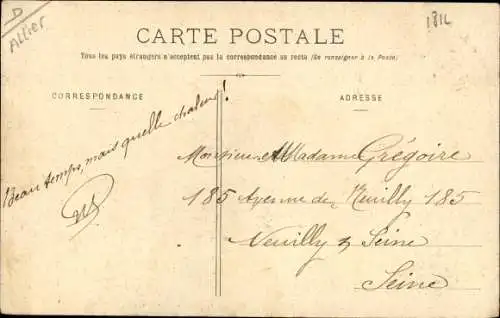 D
Allier
1814
CARTE POSTALE
Tous les pays étrangers n'acceptent pas la correspondance au recto (Se renseigner à la Poste)
CORRESPONDANCE
ADRESSE
Beau temps, mais quelle chaleur!
Monsieur et Madame Grégoire
185 Avenue de Neuilly 185
Neuilly s/ Seine
Seine